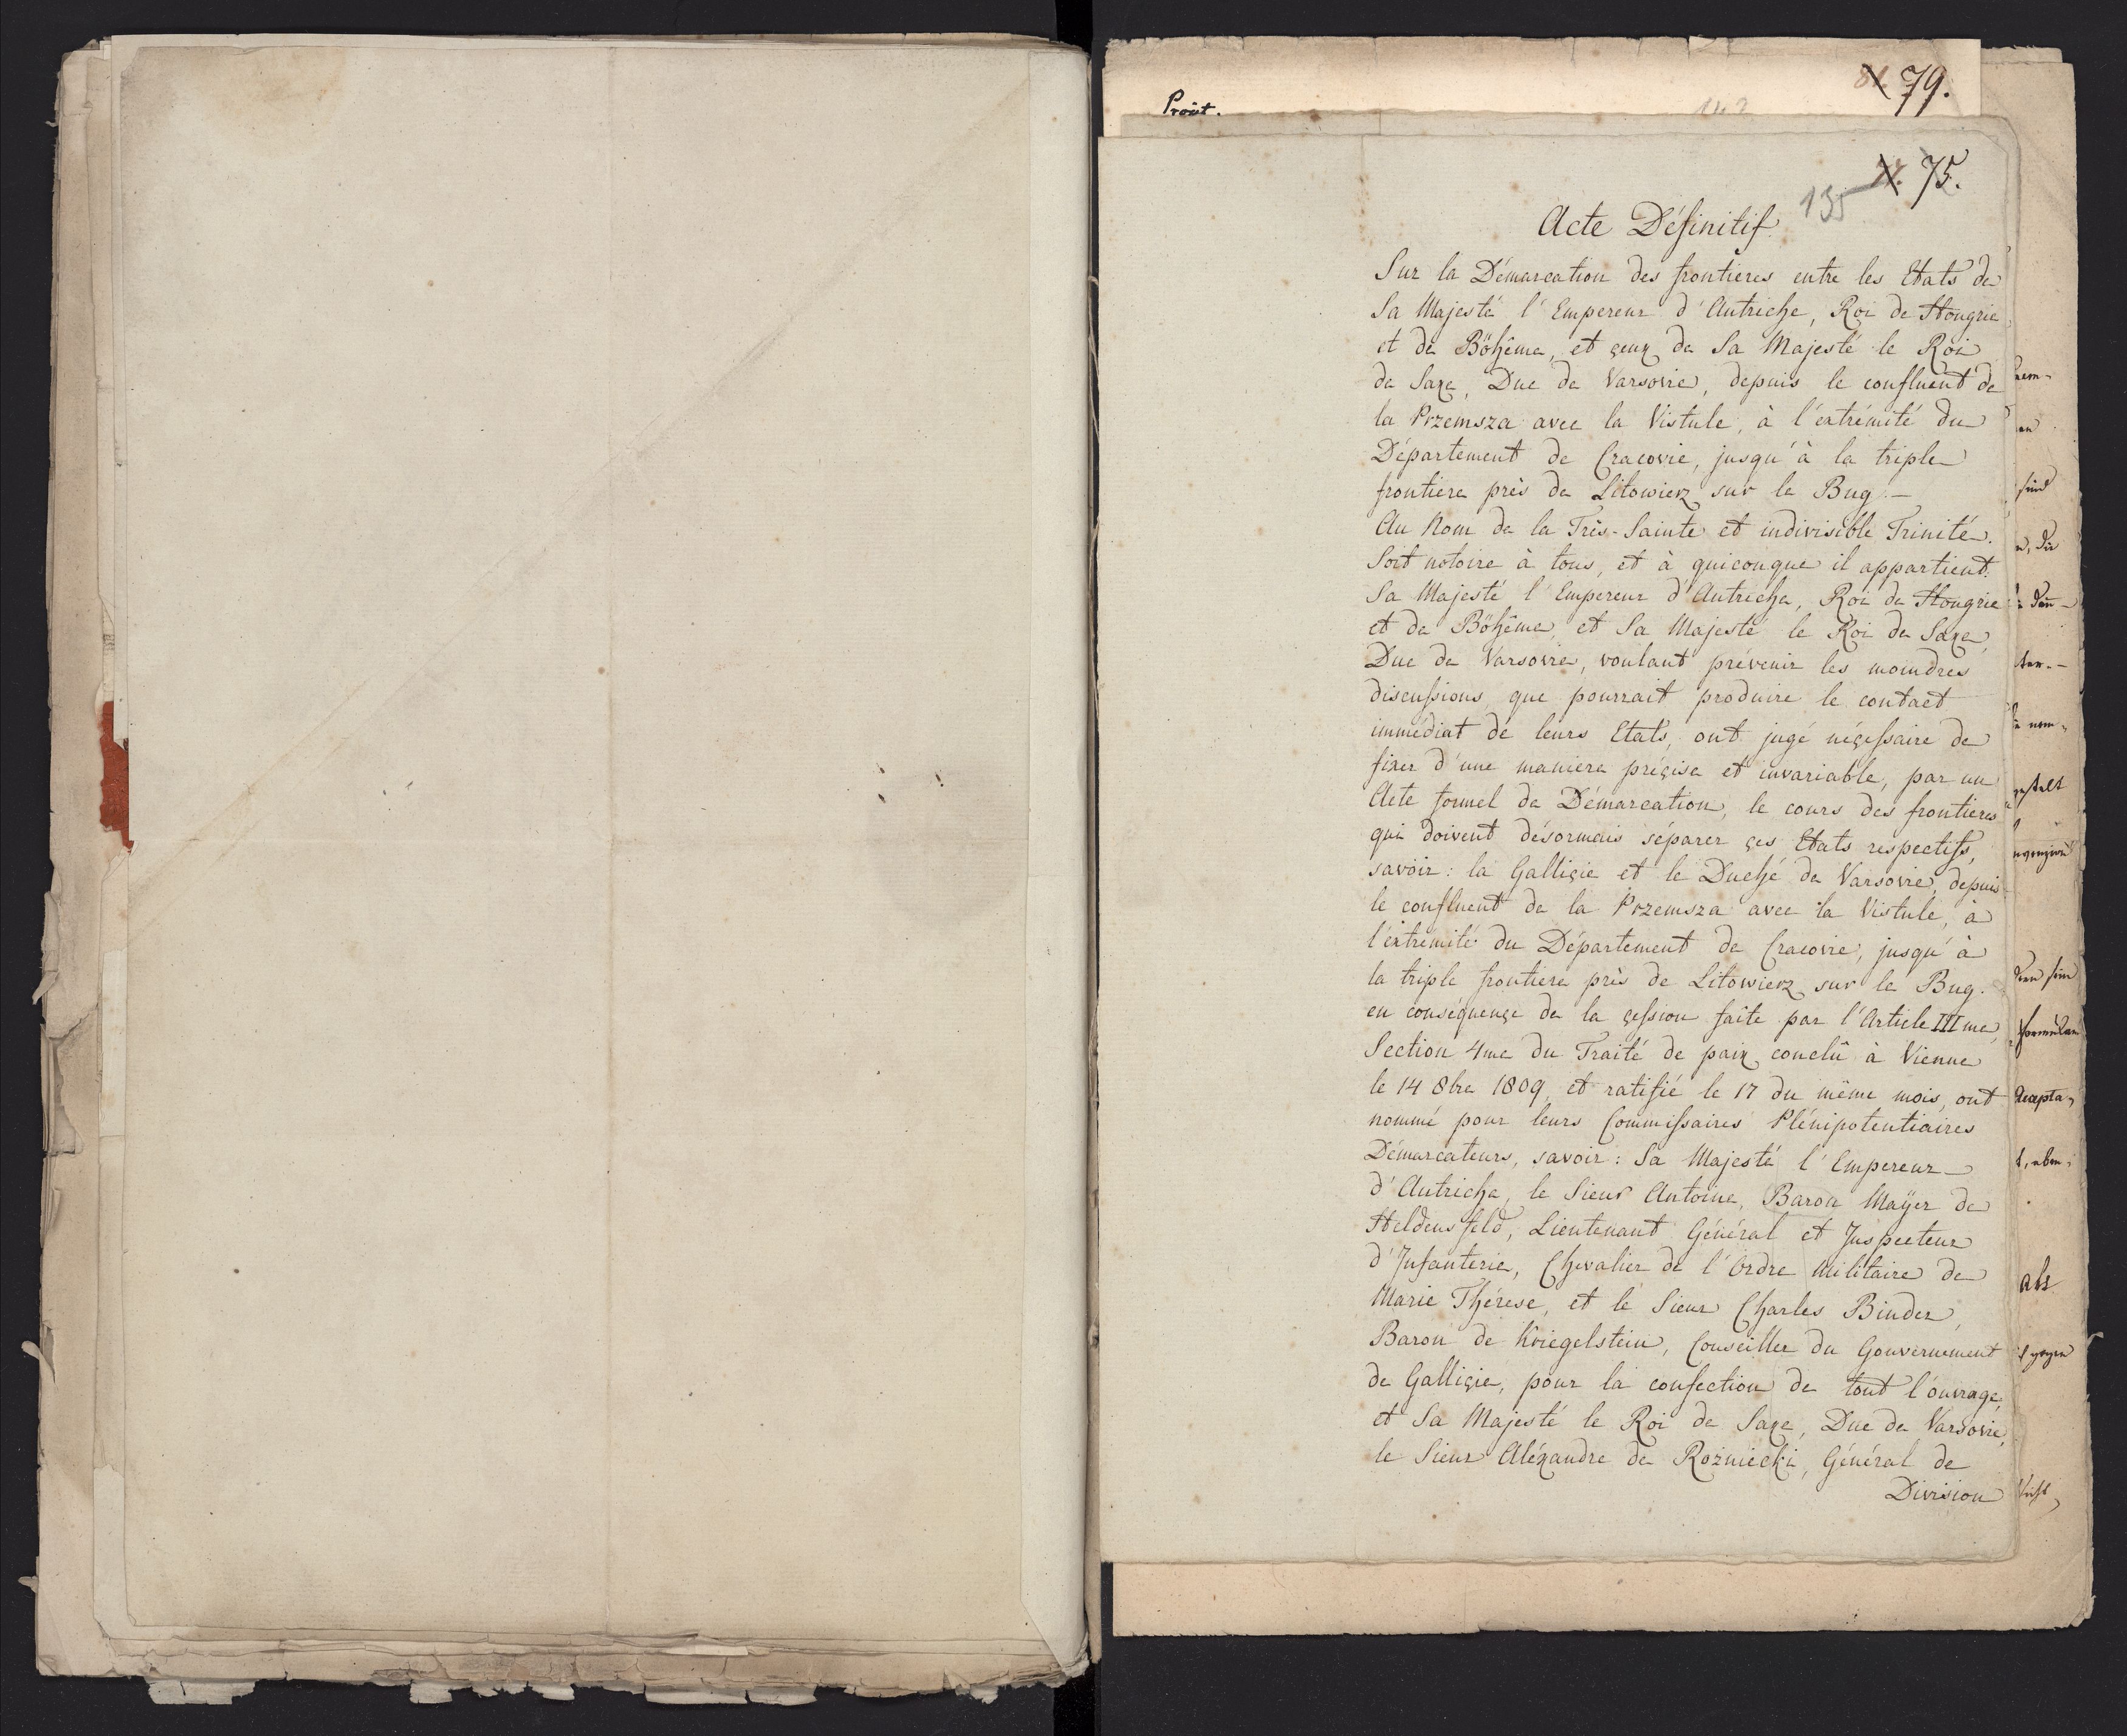 79.
Proút.
75.
135
Acte Définitif
Sur la Démarcation des frontieres entre les Etats de
Sa Majesté l'Empereur d'Autriche, Roi de Hongrie
et de Böhême, et çeux de Sa Majesté le Roi
de Saxe, Duc de Varsovie, depuis le confluent de
la Przemsza avec la Vistule, à l'extrémité du
Département de Cracovie, jusqu'à la triple
frontiere près de Litowierz sur le Bug. —
Au Nom de la Très-Sainte et indivisible Trinité.
Soit notoire à tous, et à quiconque il appartient.
Sa Majesté l'Empereur d'Autriche, Roi de Hongrie
et de Böhême, et Sa Majesté le Roi de Saxe,
Duc de Varsovie, voulant prévenir les moindres
discussions, que pourrait produire le contact
immédiat de leurs Etats, ont jugé néçessaire de
fixer d'une maniere préçise et invariable, par un
Acte formel de Démarcation, le cours des frontieres
qui doivent désormais séparer çes Etats respectifs,
savoir: la Galliçie et le Duché de Varsovie, depuis
le confluent de la Przemsza avec la Vistule, à
l'extrémité du Département de Cracovie, jusqu'à
la triple frontiere près de Litowierz sur le Bug.
en conséquençe de la çession faite par l'Article III me,
Section 4me du Traité de paix conclû à Vienne
le 14 8bre 1809, et ratifié le 17 du même mois, ont
nommé pour leurs Commissaires Plénipotentiaires
Démarcateurs, savoir: Sa Majesté l'Empereur
d'Autriche, le Sieur Antoine, Baron Maÿer de
Heldensfeld, Lieutenant Général et Inspecteur
d'Infanterie, Chevalier de l'Ordre Militaire de
Marie Thérese, et le Sieur Charles Binder,
Baron de Kriegelstein, Conseiller du Gouvernement
de Galliçie, pour la confection de tout l'ouvrage,
et Sa Majesté le Roi de Saxe, Duc de Varsovie,
le Sieur Aléxandre de Rożniecki, Général de
Division